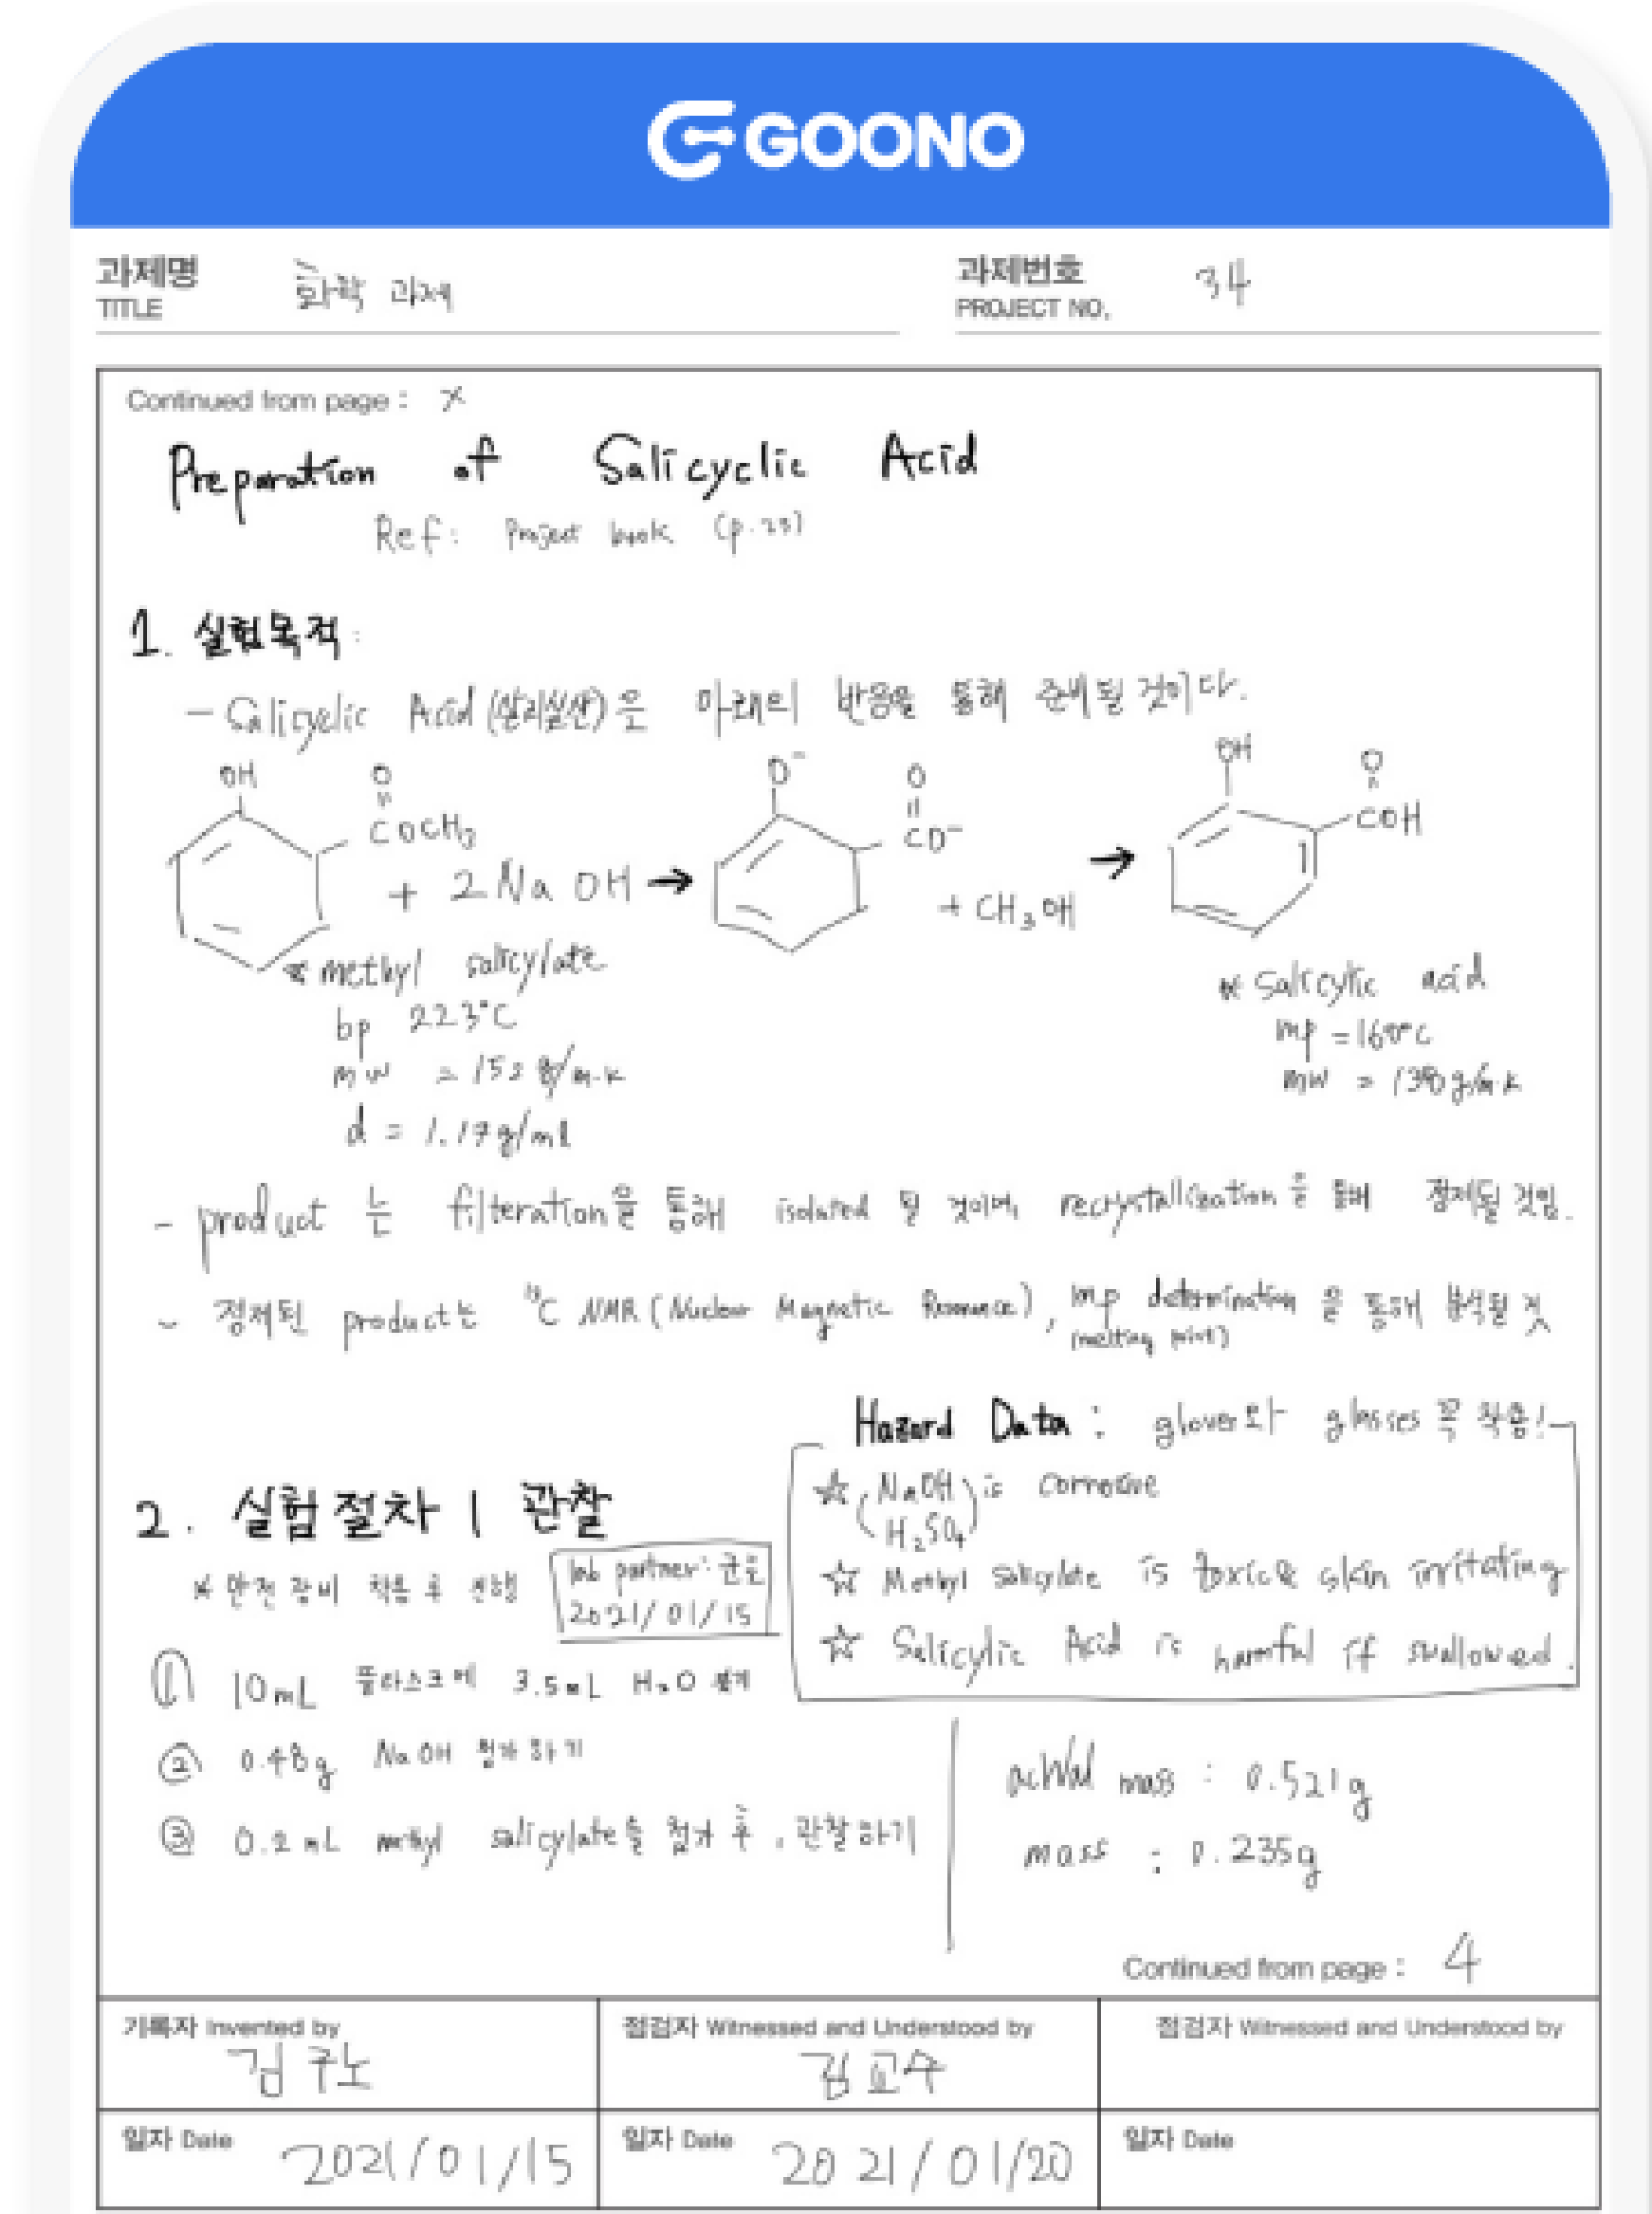 GOONO
과제명
TITLE
화학 과제
과제번호
PROJECT NO.
34
Continued from page : X
Preparation of Salicyclic Acid
Ref: Project book (p.23)
1. 실험목적:
- Salicyclic Acid (살리실산)은 아래의 반응을 통해 준비될 것이다.
OH
O
COCH3
+ 2 NaOH →
O-
O
CO-
+ CH3OH
→
OH
O
COH
* methyl salicylate
bp 223°C
mw = 152 g/
d = 1.17g/ml
* Salicylic acid
mp = 160°C
mw = 138g/
- product 는 filteration을 통해 isolated 될 것이며, recrystallization을 통해 정제될 것임.
- 정제된 product는 13C NMR (Nuclear Magnetic Resonance), mp determination 을 통해 분석될 것
(melting point)
Hazard Data : glover와 glasses 꼭 착용!
☆ (NaOH
H2SO4) is corrosive
☆ Methyl salicylate is toxic & skin irritating
☆ Salicylic Acid is harmful if swallowed.
2. 실험절차 | 관찰
* 안전 장비 착용 후 진행
lab partner: 구노
2021/01/15
① 10mL 플라스크에 3.5mL H2O 넣기
② 0.48g NaOH 첨가하기
③ 0.2mL methyl salicylate을 첨가 후, 관찰하기
actual mass : 0.521g
mass : 0.235g
Continued from page : 4
기록자 Invented by
김구노
점검자 Witnessed and Understood by
김교수
점검자 Witnessed and Understood by
일자 Date 2021/01/15
일자 Date 2021/01/20
일자 Date